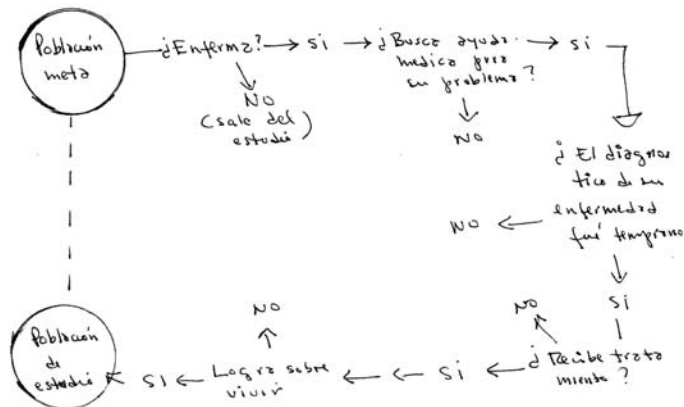 Población
meta
¿Enferma? → Si → ¿Busca ayuda → Si
medica para
su problema?
NO
(sale del
estudio)
NO
¿El diagnos
tico de su
enfermedad
fué temprano
NO
Si
¿Recibe trata
miento?
NO
Si
Logra sobre
vivir
NO
Si
Población
de
estudio